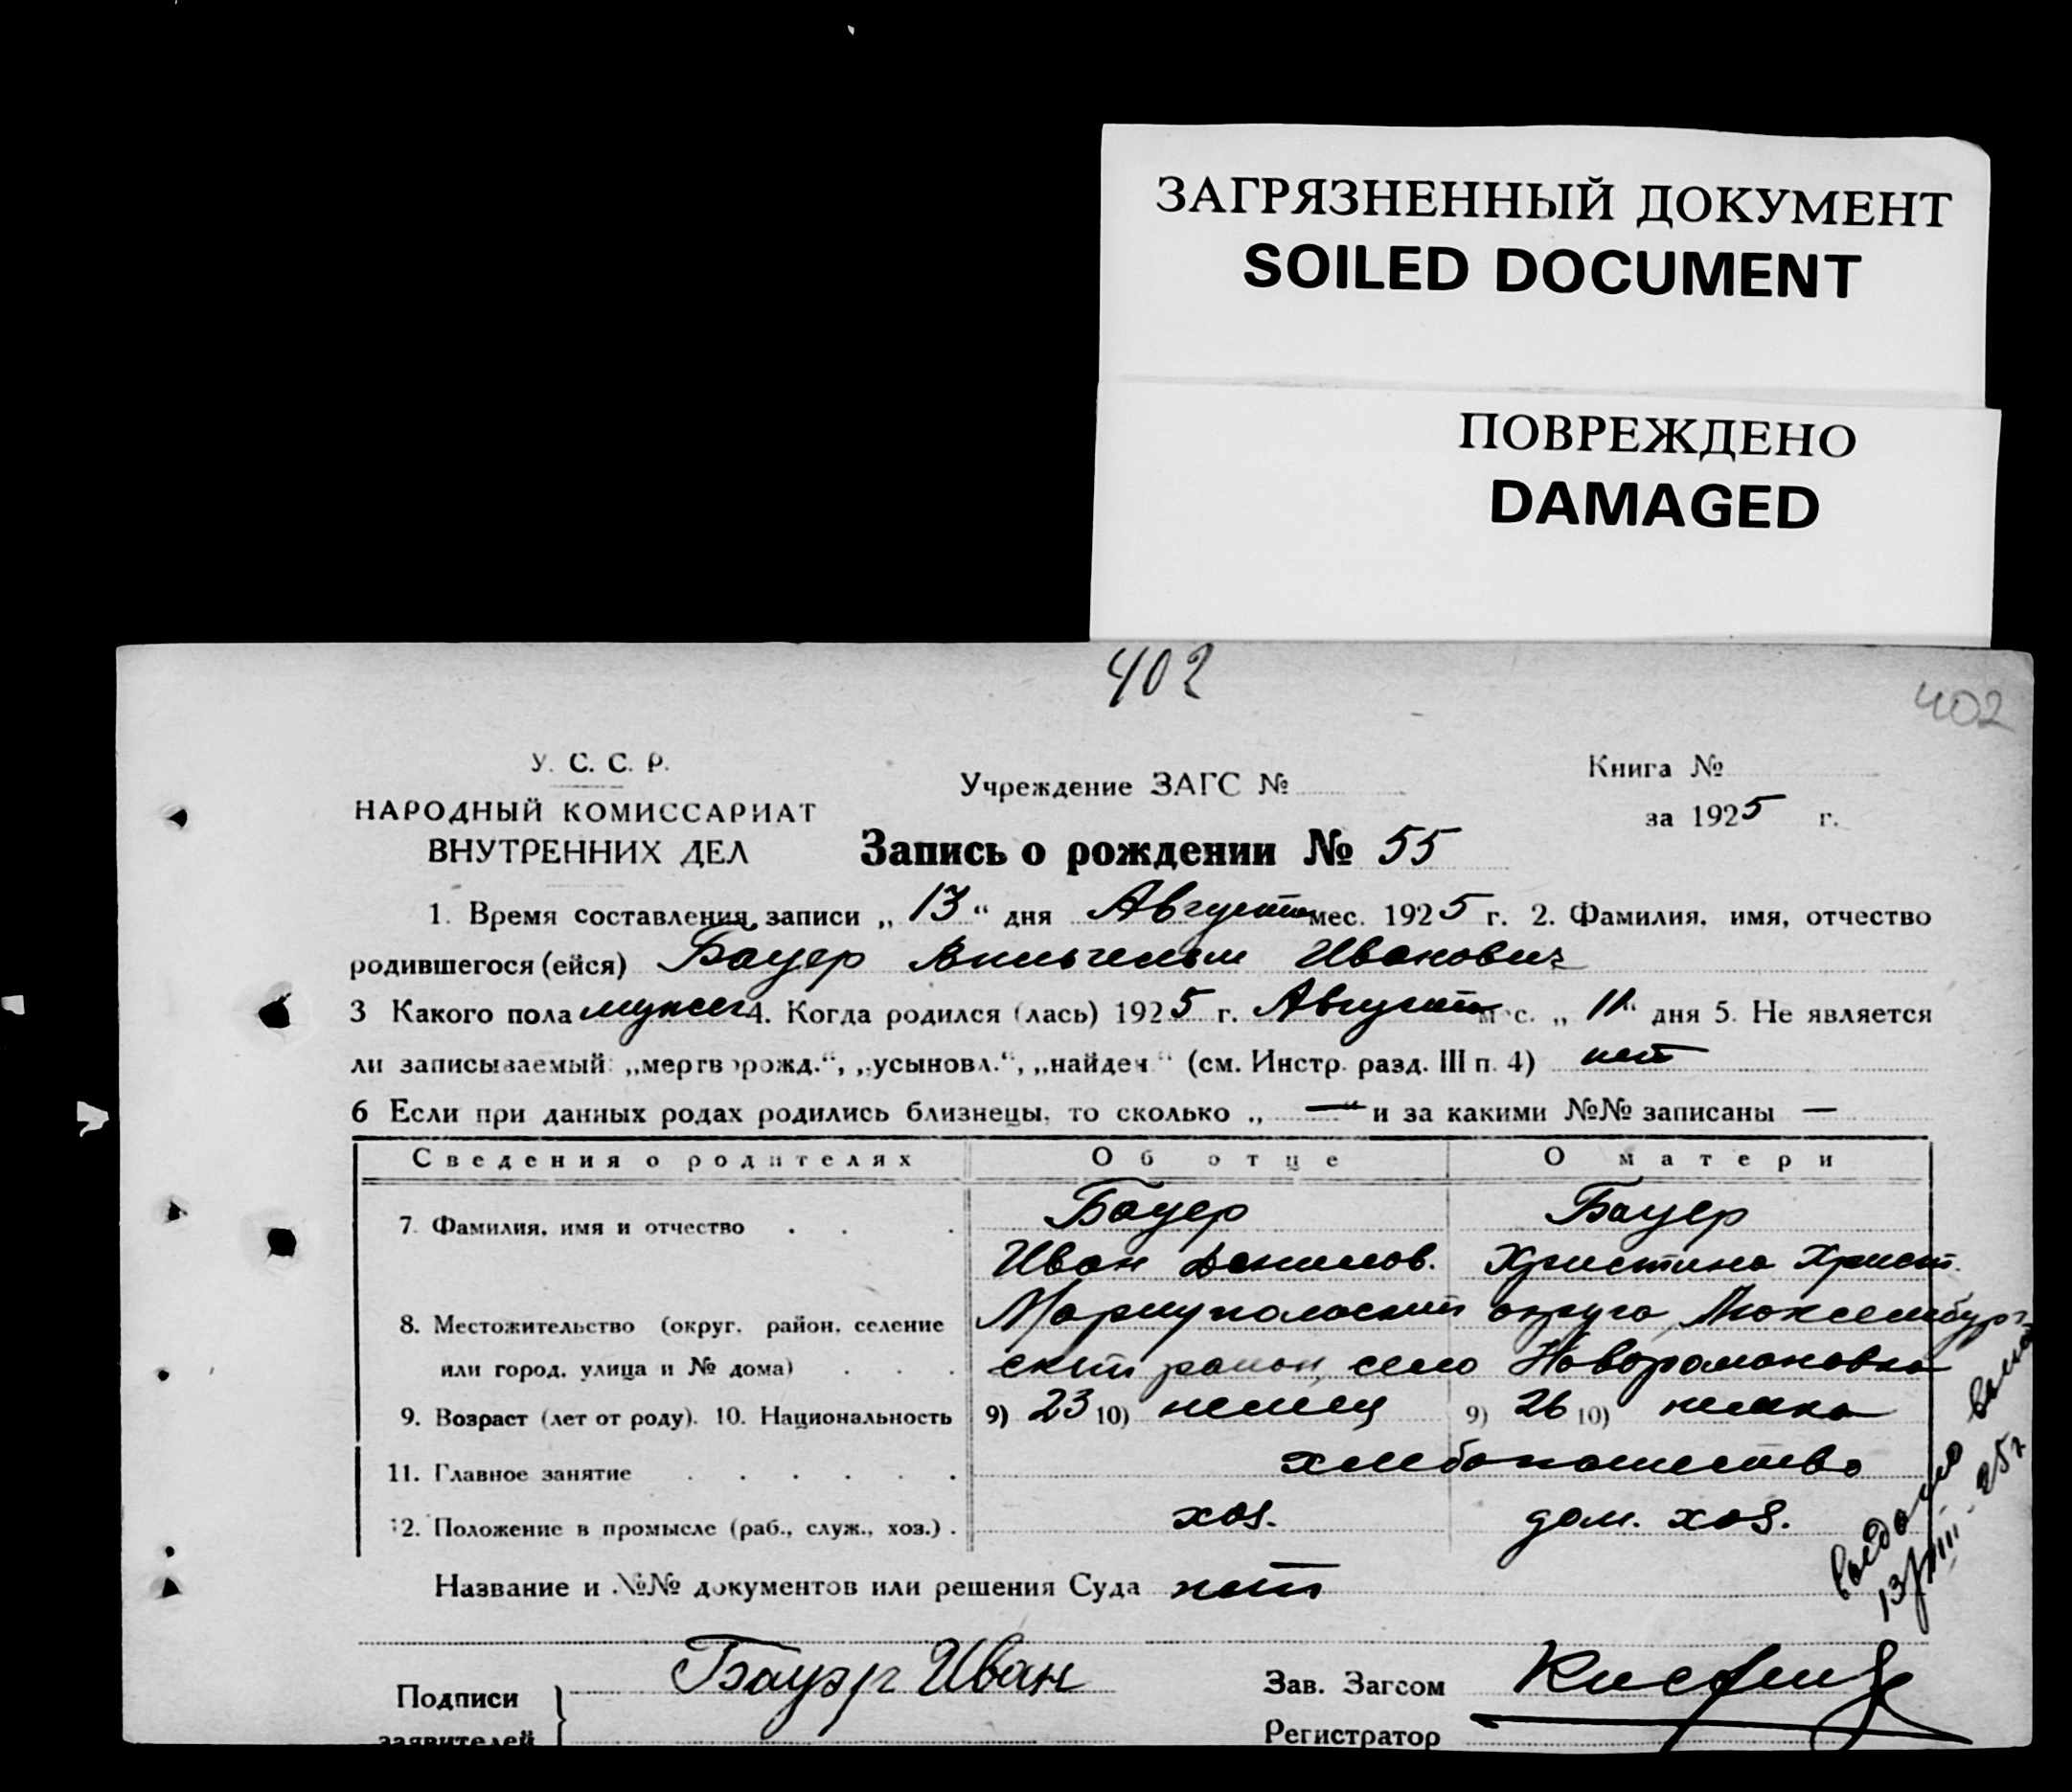 ЗАГРЯЗНЕННЫЙ ДОКУМЕНТ
SOILED DOCUMENT
ПОВРЕЖДЕНО
DAMAGED
402
402
У. С. С. Р.
НАРОДНЫЙ КОМИССАРИАТ
ВНУТРЕННИХ ДЕЛ
Учреждение ЗАГС №
Книга №
за 1925 г.
Запись о рождении № 55
1. Время составления записи „13“ дня Августа мес. 1925 г. 2. Фамилия, имя, отчество
родившегося (ейся) Бауер Вильгельм Иванович
3 Какого пола мужск 4. Когда родился (лась) 1925 г. Август м с. „11“ дня 5. Не является
ли записываемый: „мертворожд.“, „усыновл.“, „найден“ (см. Инстр. разд. III п. 4) нет
6 Если при данных родах родились близнецы, то сколько „—“ и за какими №№ записаны —
Сведения о родителях Об отце О матери
7. Фамилия, имя и отчество . . . Бауер Бауер
Иван Данилов. Христина Христ.
8. Местожительство (округ, район, селение Мариупольский округа, Люксембург
или город, улица и № дома) . . . ский район, село Новоромановка
9. Возраст (лет от роду). 10. Национальность 9) 23 10) немец 9) 26 10) немка
11. Главное занятие . . . . . . хлебопашество
12. Положение в промысле (раб., служ., хоз.) . хоз. дом. хоз.
Название и №№ документов или решения Суда нет
13/VIII-25г
Подписи Бауэр Иван Зав. Загсом
заявителей Регистратор